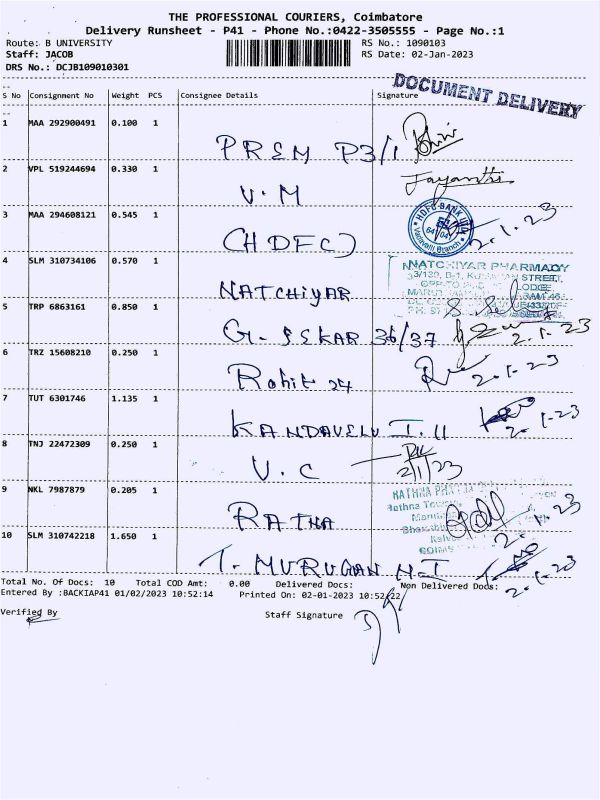 THE PROFESSIONAL COURIERS, Coimbatore
Delivery Runsheet - P41 - Phone No.:0422-3505555 - Page No.:1
Route: B UNIVERSITY RS No.: 1090103
Staff: JACOB RS Date: 02-Jan-2023
DRS No.: DCJB109010301
DOCUMENT DELIVERY
S No Consignment No Weight PCS Consignee Details Signature
1 MAA 292900491 0.100 1
PREM P3/1
2 VPL 519244694 0.330 1 Jayanthi
V.M
3 MAA 294608121 0.545 1 HDFC BANK 2.1.23
(HDFC)
4 SLM 310734106 0.570 1 NATCHIYAR PHARMACY
STREET,
LODGE
NATCHIYAR
5 TRP 6863161 0.850 1
G. SEKAR 36/37 2.1.23
6 TRZ 15608210 0.250 1
Rohit 24 2.1.23
7 TUT 6301746 1.135 1
KANDAVELU I.11 2.1-23
8 TNJ 22472309 0.250 1
V.C 2/1/23
9 NKL 7987879 0.205 1 RATHNA
Rathna
RATNA 2.1.23
10 SLM 310742218 1.650 1
T. MURUGAN M.I 2.1.23
Total No. Of Docs: 10 Total COD Amt: 0.00 Delivered Docs: Non Delivered Docs:
Entered By :BACKIAP41 01/02/2023 10:52:14 Printed On: 02-01-2023 10:52:22
Verified By Staff Signature